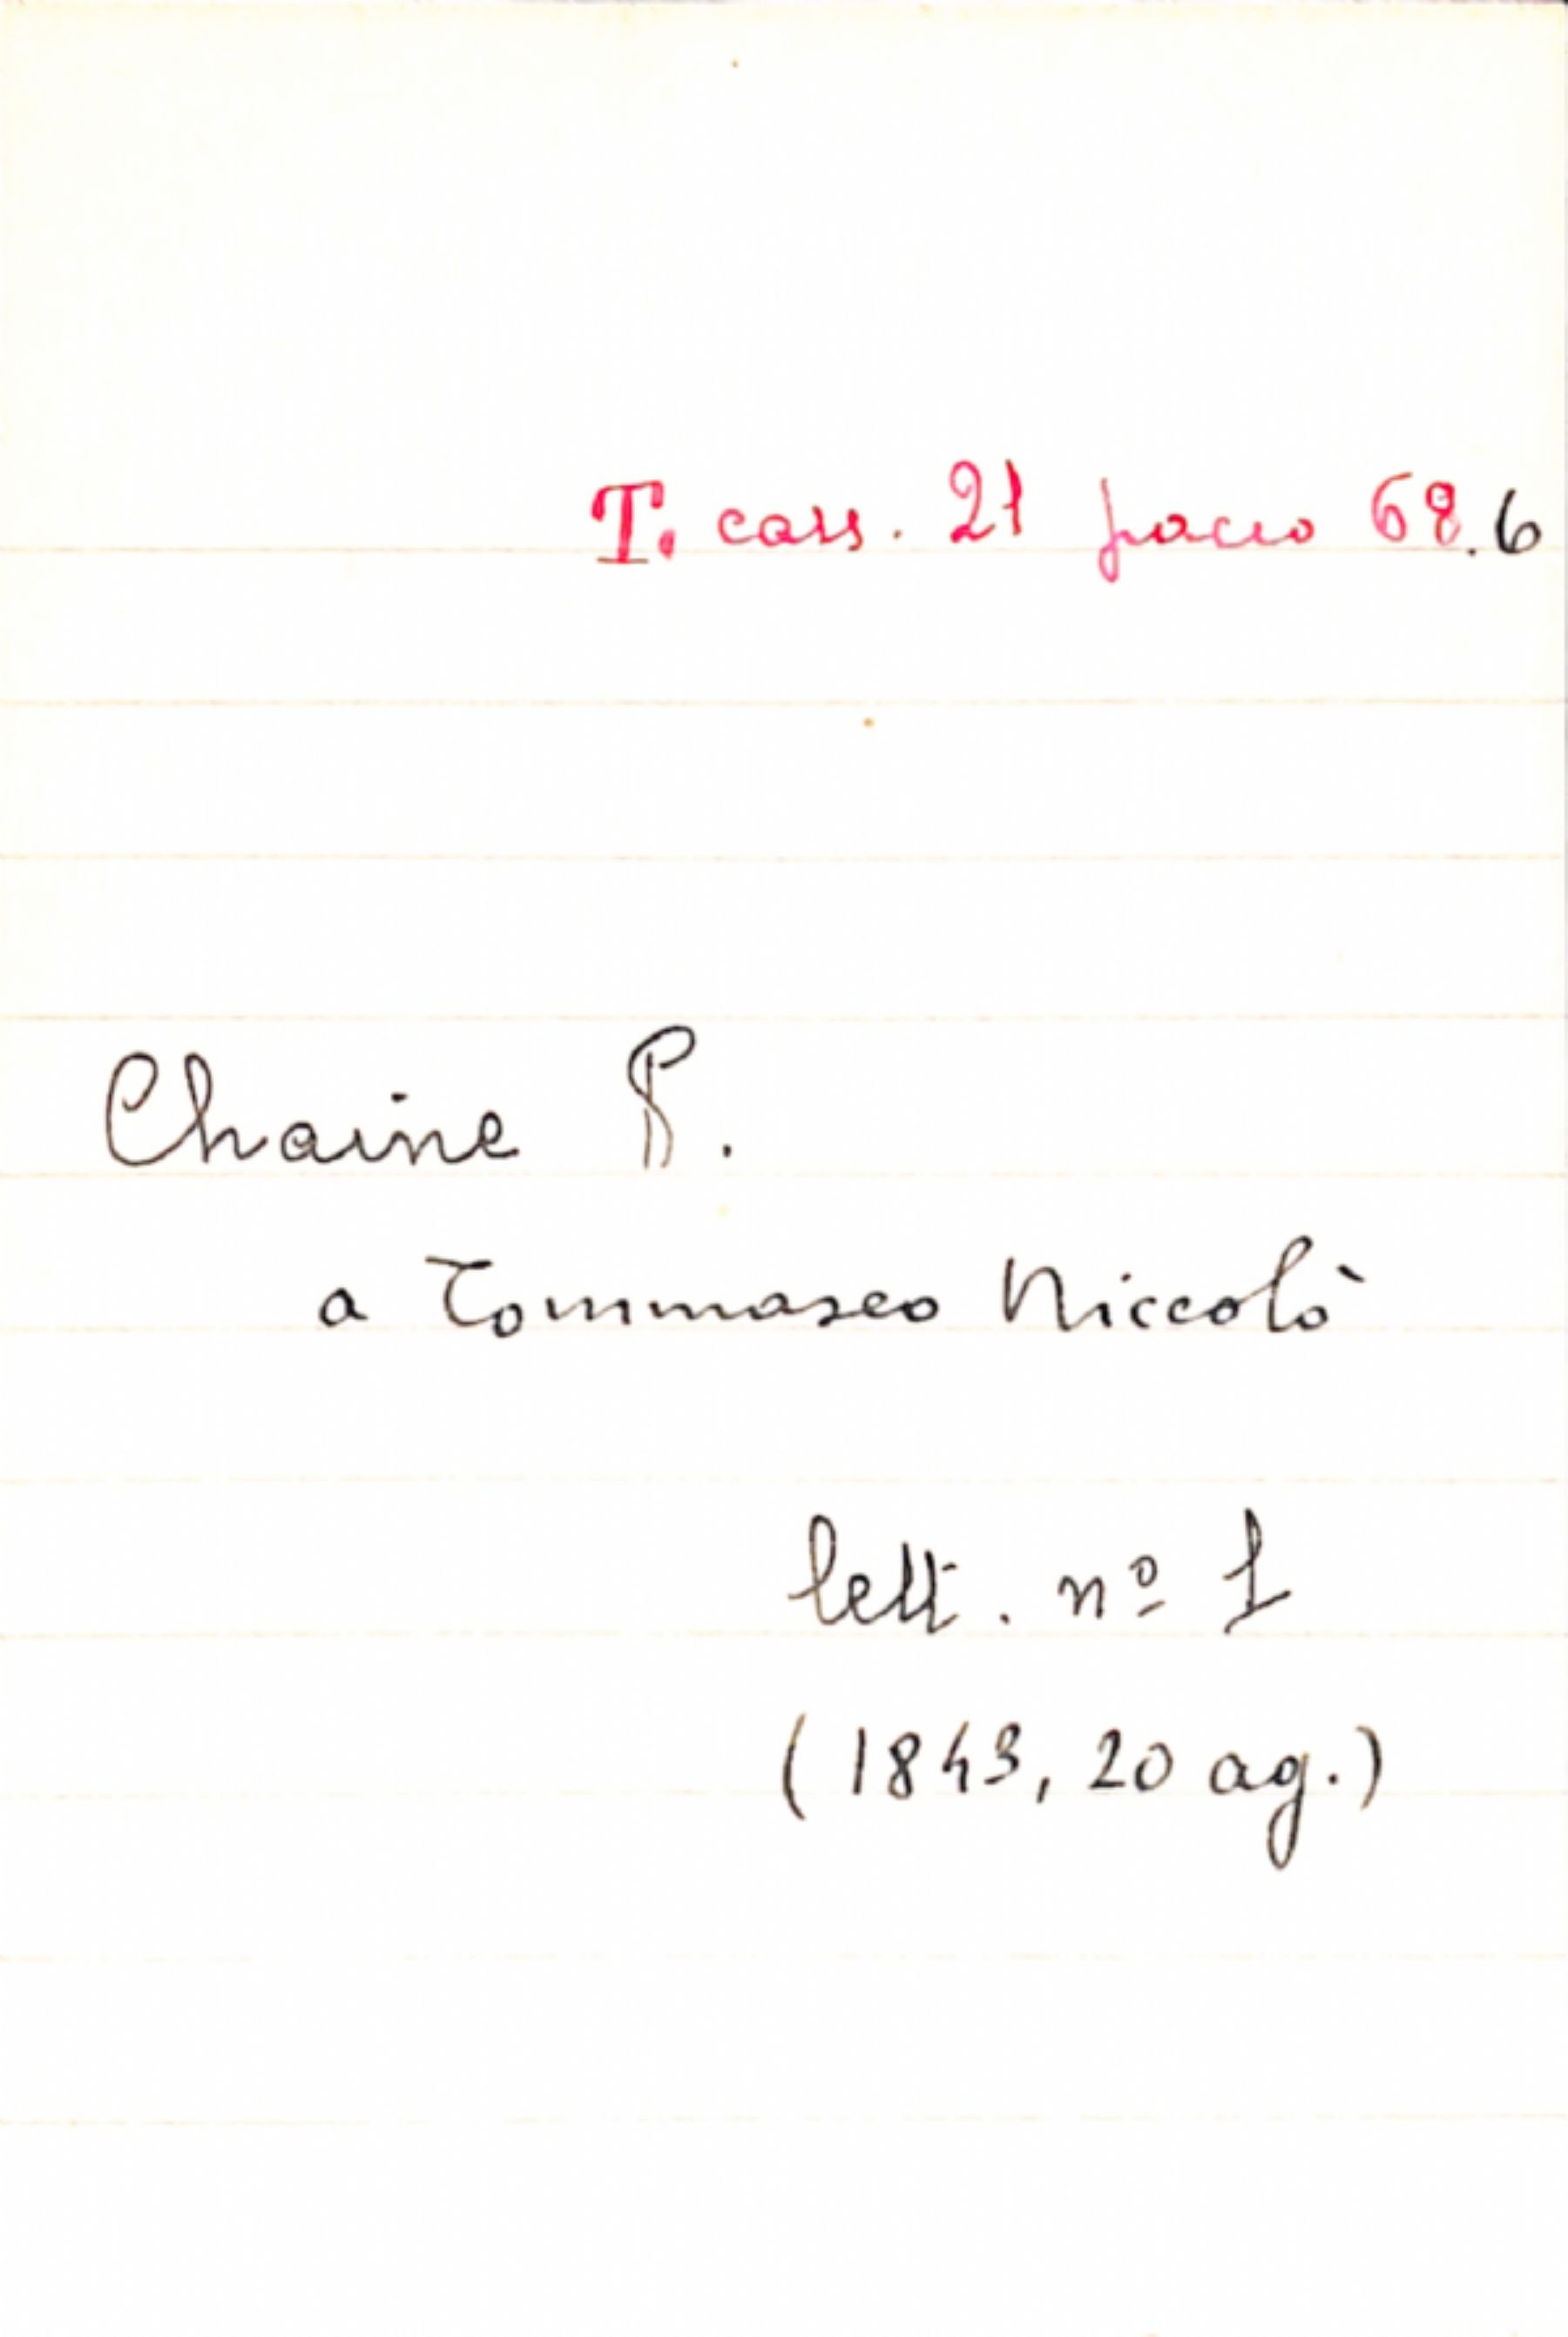 T. cass. 21 pacco 68.6
Chaine P.
a Tommaseo Niccolò
lett. nº 1
(1843, 20 ag.)